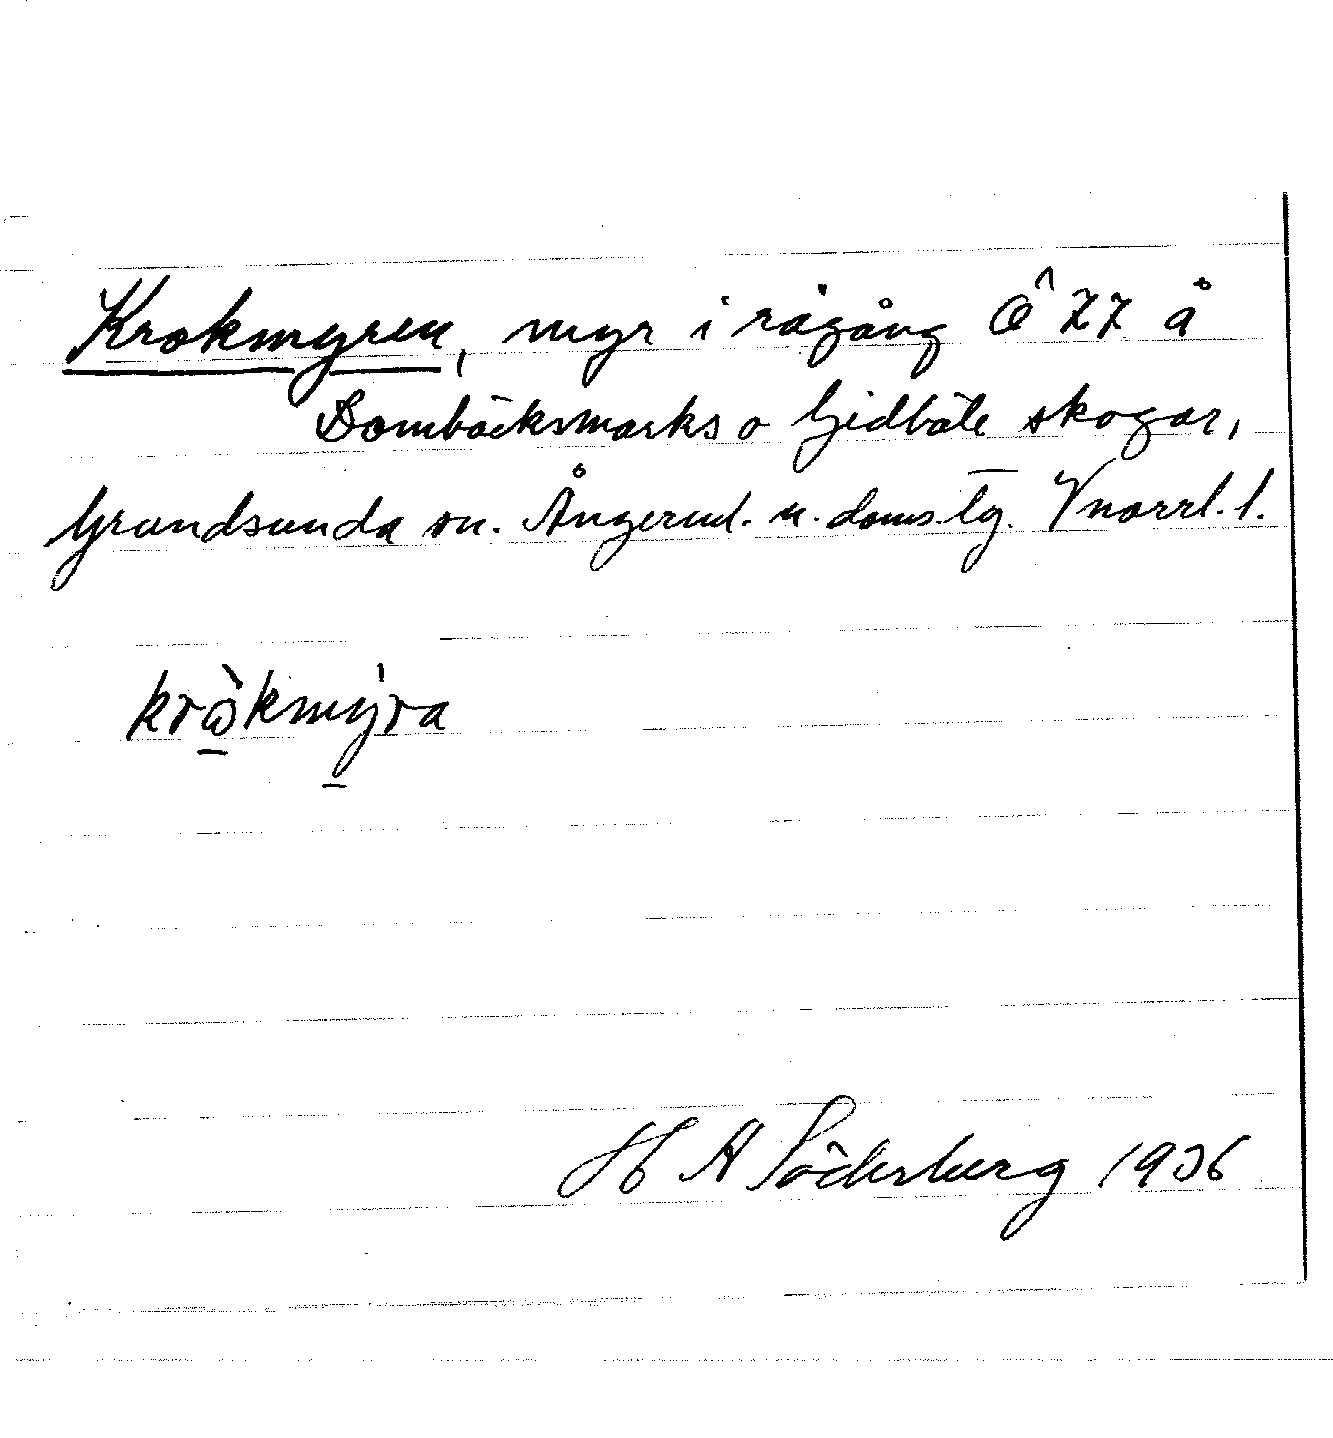 Krokmyren, myr i rågång Ö 77 å
Dombäcksmarks o Gidböle skogar,
Grundsunda sn. Ångerml. n. doms.lg. Vnorrl. l.
kròkmýra
H A Söderberg 1936